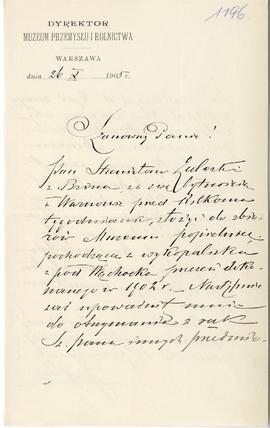 1196
DYREKTOR
MUZEUM PRZEMYSŁU I ROLNICTWA
WARSZAWA
dnia 26 X 1905 r.
Szanowny Panie!
Pan Stanisław
z za swej bytności
w Warszawie przed kilkoma
tygodniami, złożył do zbio-
rów Muzeum popielnicę
pochodzącą z wykopaliska
z pod Wąchocka
w 1902 r. Nadzieję
zaś upoważnił mnie
do otrzymania z rąk
Sz. pana innych przedmio-